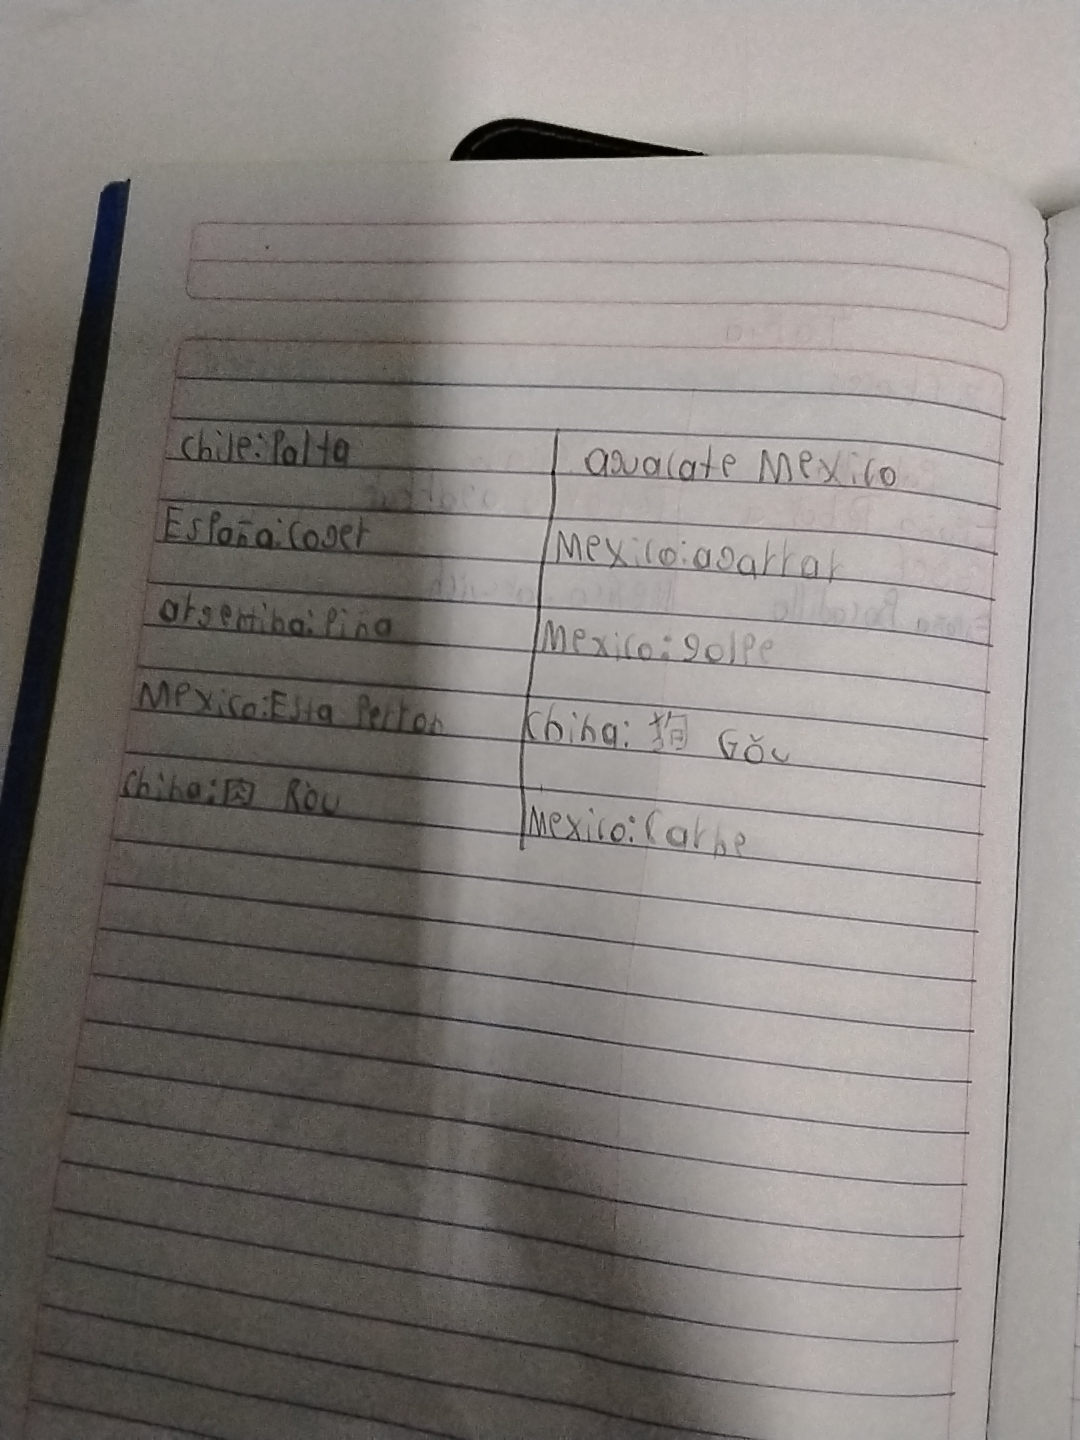 Chile: Palta
aguacate Mexico
España: Coger
Mexico: agarrar
argentina: Piña
Mexico: golpe
Mexico: Esta Perron
China: 狗 Gǒu
China: 肉 Ròu
Mexico: Carne